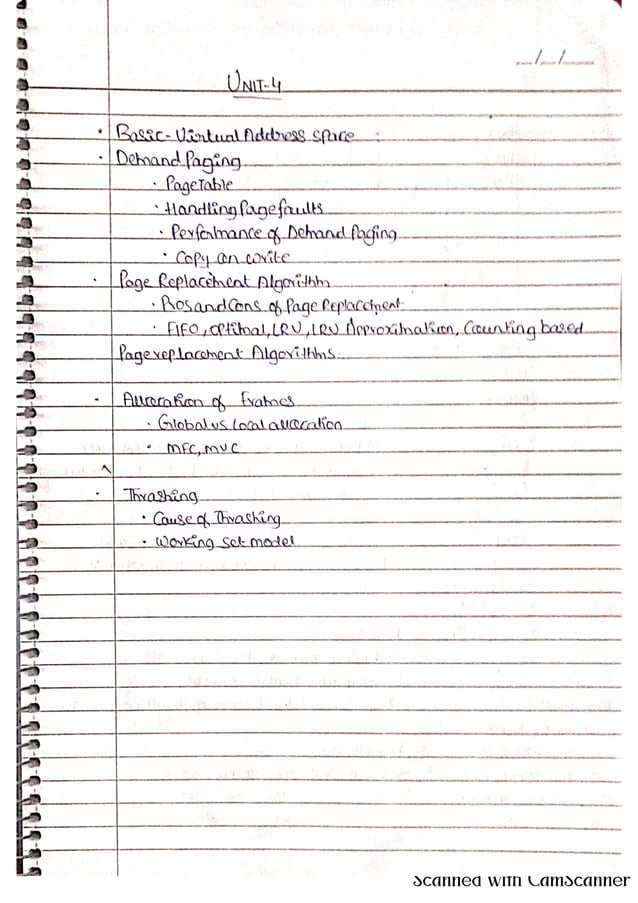 __/__/____
UNIT-4
· Basic - Virtual Address space :
· Demand Paging
· Page Table
· Handling Page faults
· Performance of Demand Paging
· Copy on write
· Page Replacement Algorithm
· Pros and Cons of Page Replacement
· FIFO, optimal, LRU, LRU Approximation, Counting based
Page replacement Algorithms.
· Allocation of Frames
· Global vs Local allocation
· MFC, MVC
· Thrashing
· Cause of Thrashing
· Working Set model
Scanned with CamScanner